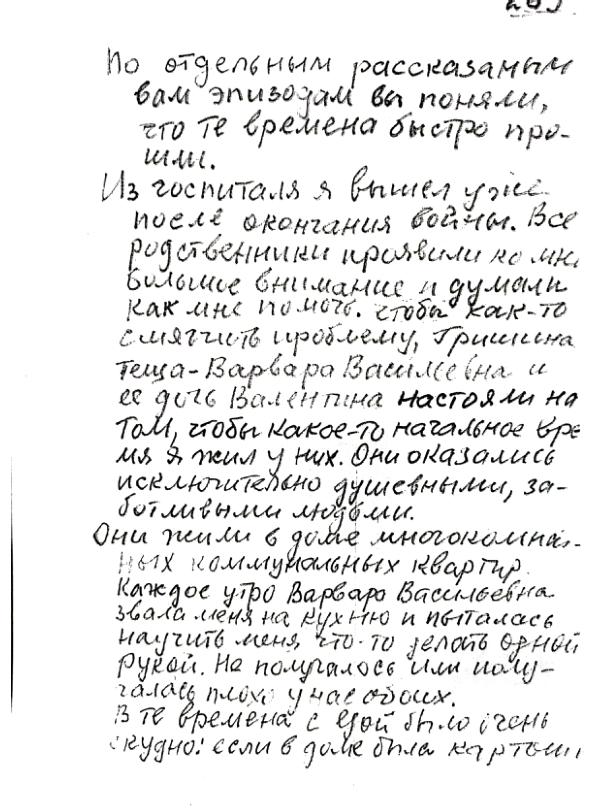 203
По отдельным рассказаным
вам эпизодам вы поняли,
что те времена быстро про-
шли.
Из госпиталя я вышел уже
после окончания войны. Все
родственники проявили ко мне
большое внимание и думали
как мне помочь. чтобы как-то
смягчить проблему, Гришина
теща-Варвара Васильевна и
ее дочь Валентина настояли на
том, чтобы какое-то начальное вре
мя я жил у них. Они оказались
исключительно душевными, за-
ботливыми людьми.
Они жили в доме многокомнат-
ных коммунальных квартир.
Каждое утро Варвара Васильевна
звала меня на кухню и пыталась
научить меня что-то делать одной
рукой. Не получалось или полу-
чалась плохо у нас обоих.
В те времена с едой было очень
скудно: если в доме была картош